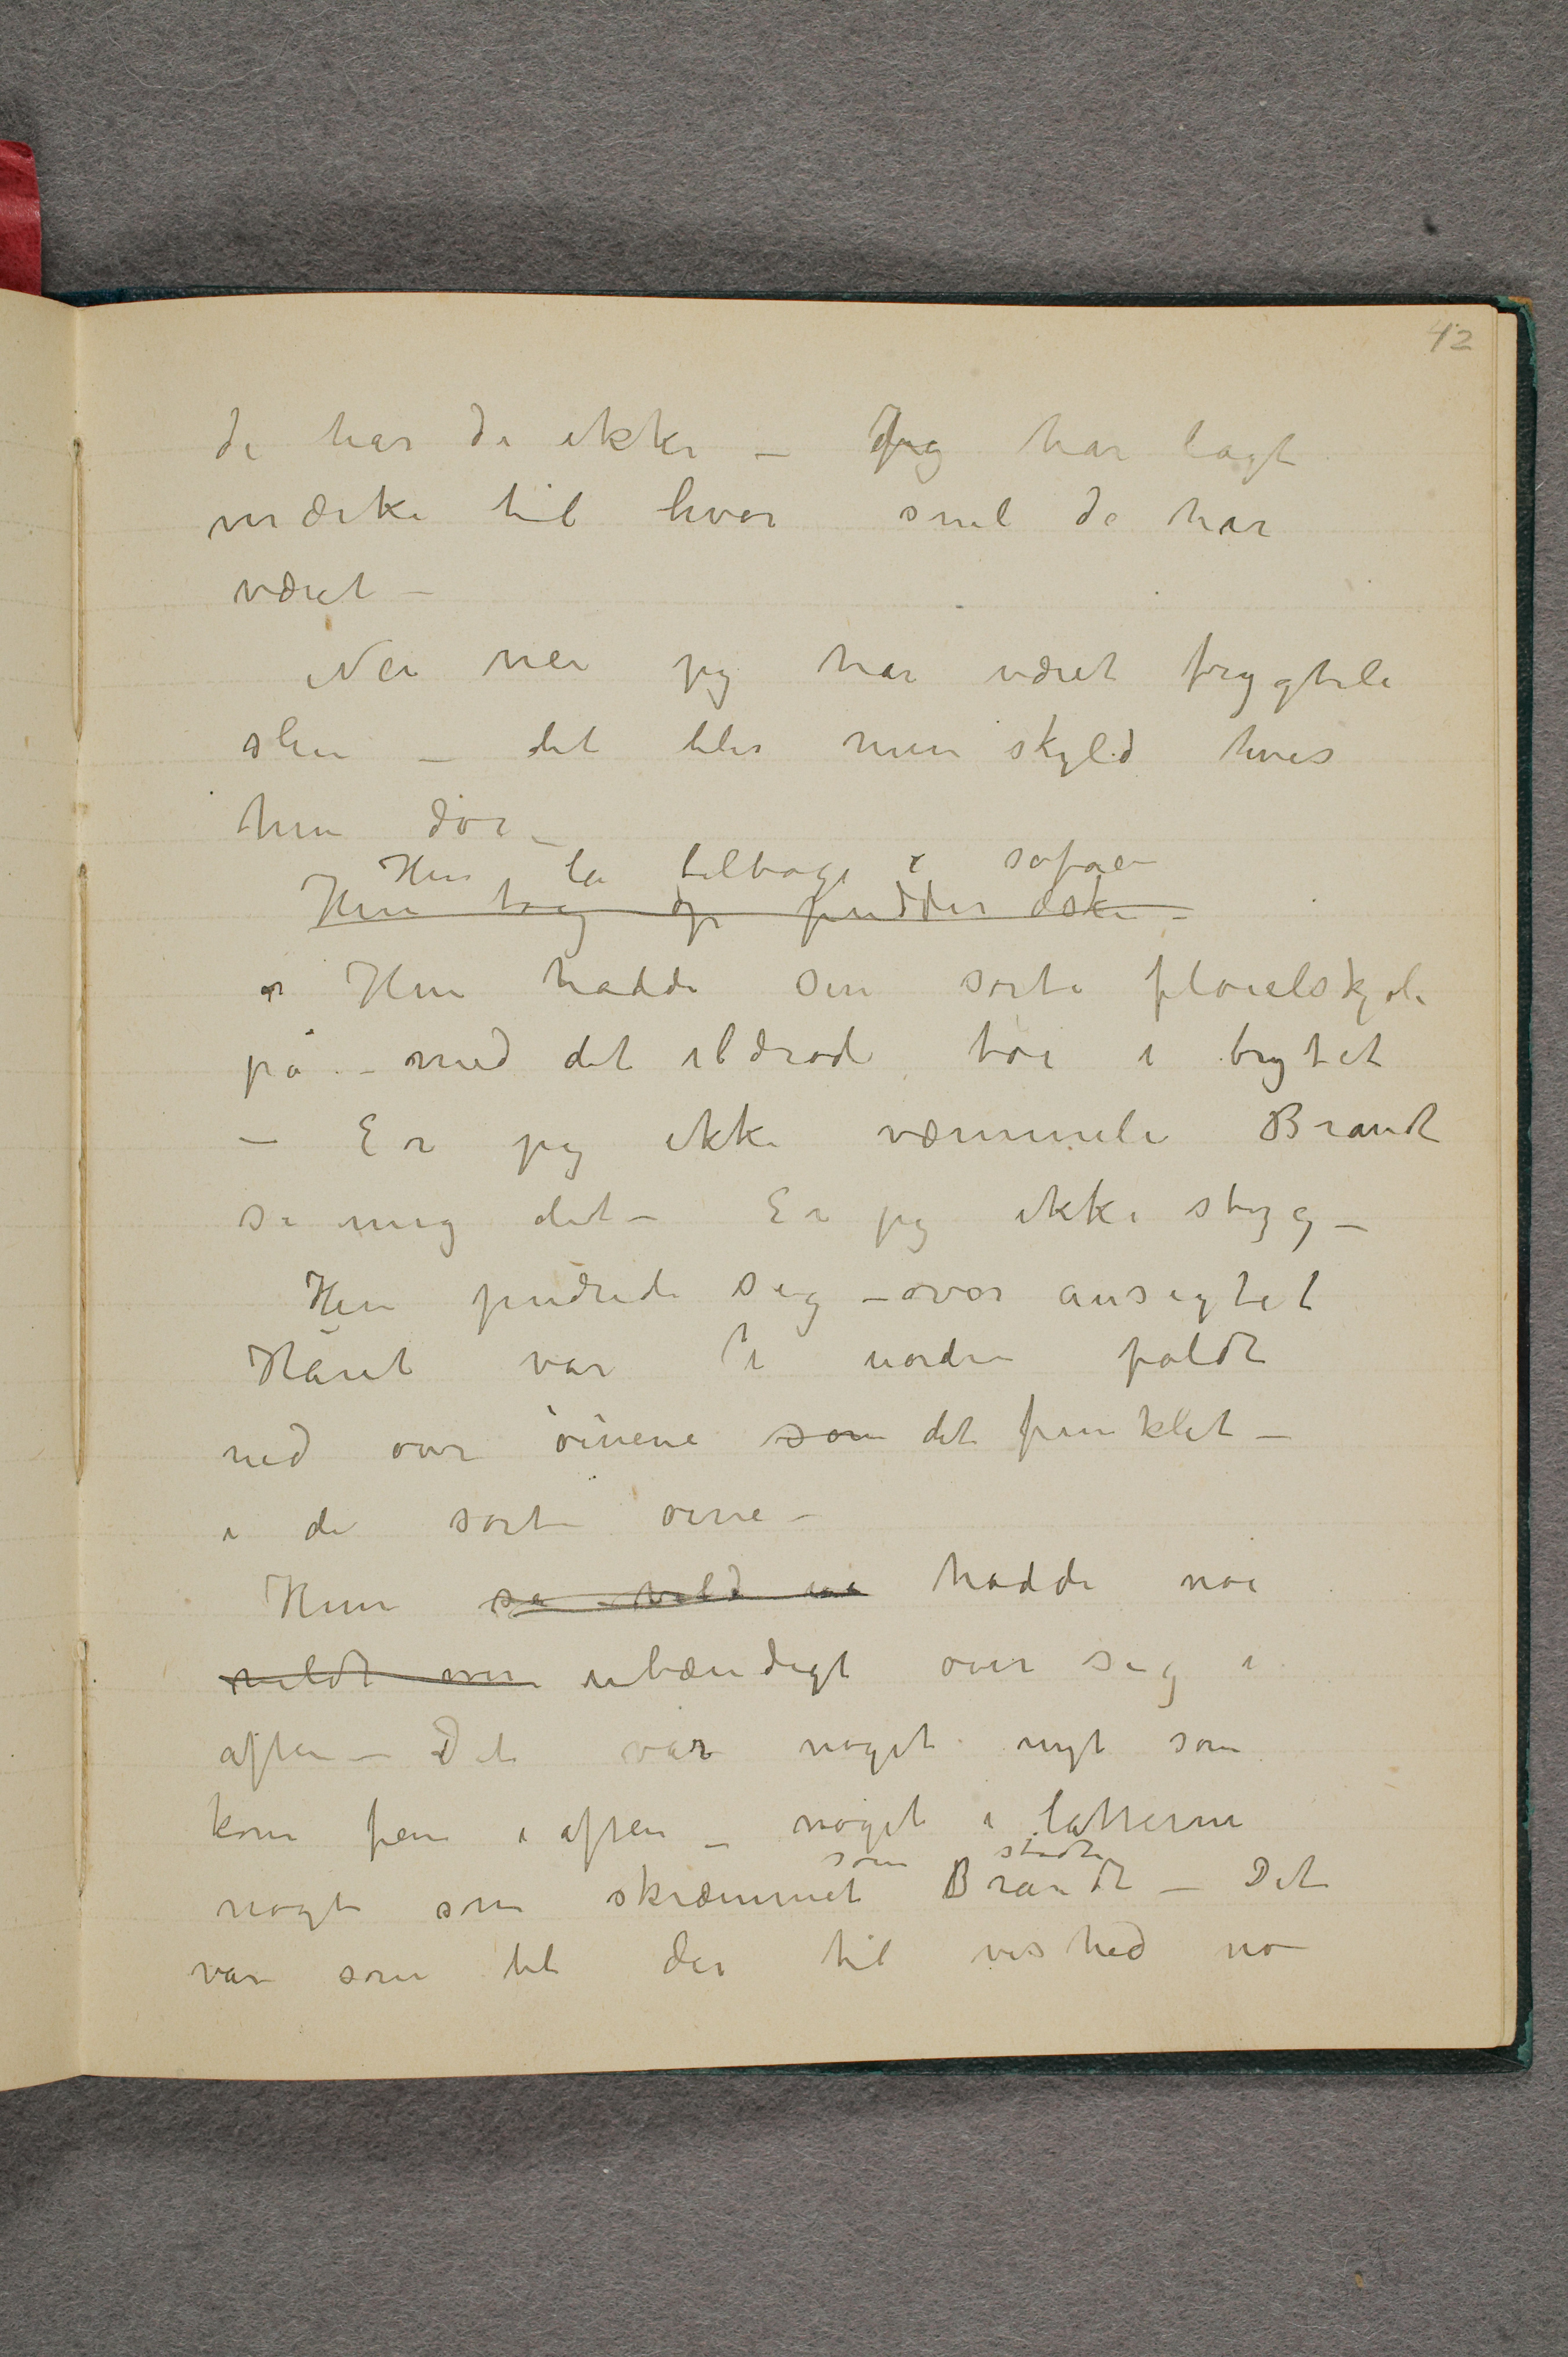 42
de har de ikke – Jeg har lagt
mærke til hvor snil de har
været –
Nei nei jeg har været frygtele
slem – det blir min skyld hvis
hun dør –
Hun la tilbage i sofaen
Hun tog op pudder æske –
Hun hadde sin sorte fløielskjole
på – med det ildrøde tøi i brytet
– Er jeg ikke væmmele Brandt
si mig det – Er jeg ikke styg –
Hun pudrede sig – over ansigtet
Håret var i uorden faldt
ned over øinene som det funklet –
i de sorte øine –
Hun så vild ud hadde noe
vildt over ubændigt over sig i
aften – Det var noget nyt som
kom frem i aften – noget i latteren
som stødte
noget som skræmmet Brandt – Det
var som det der til vished no